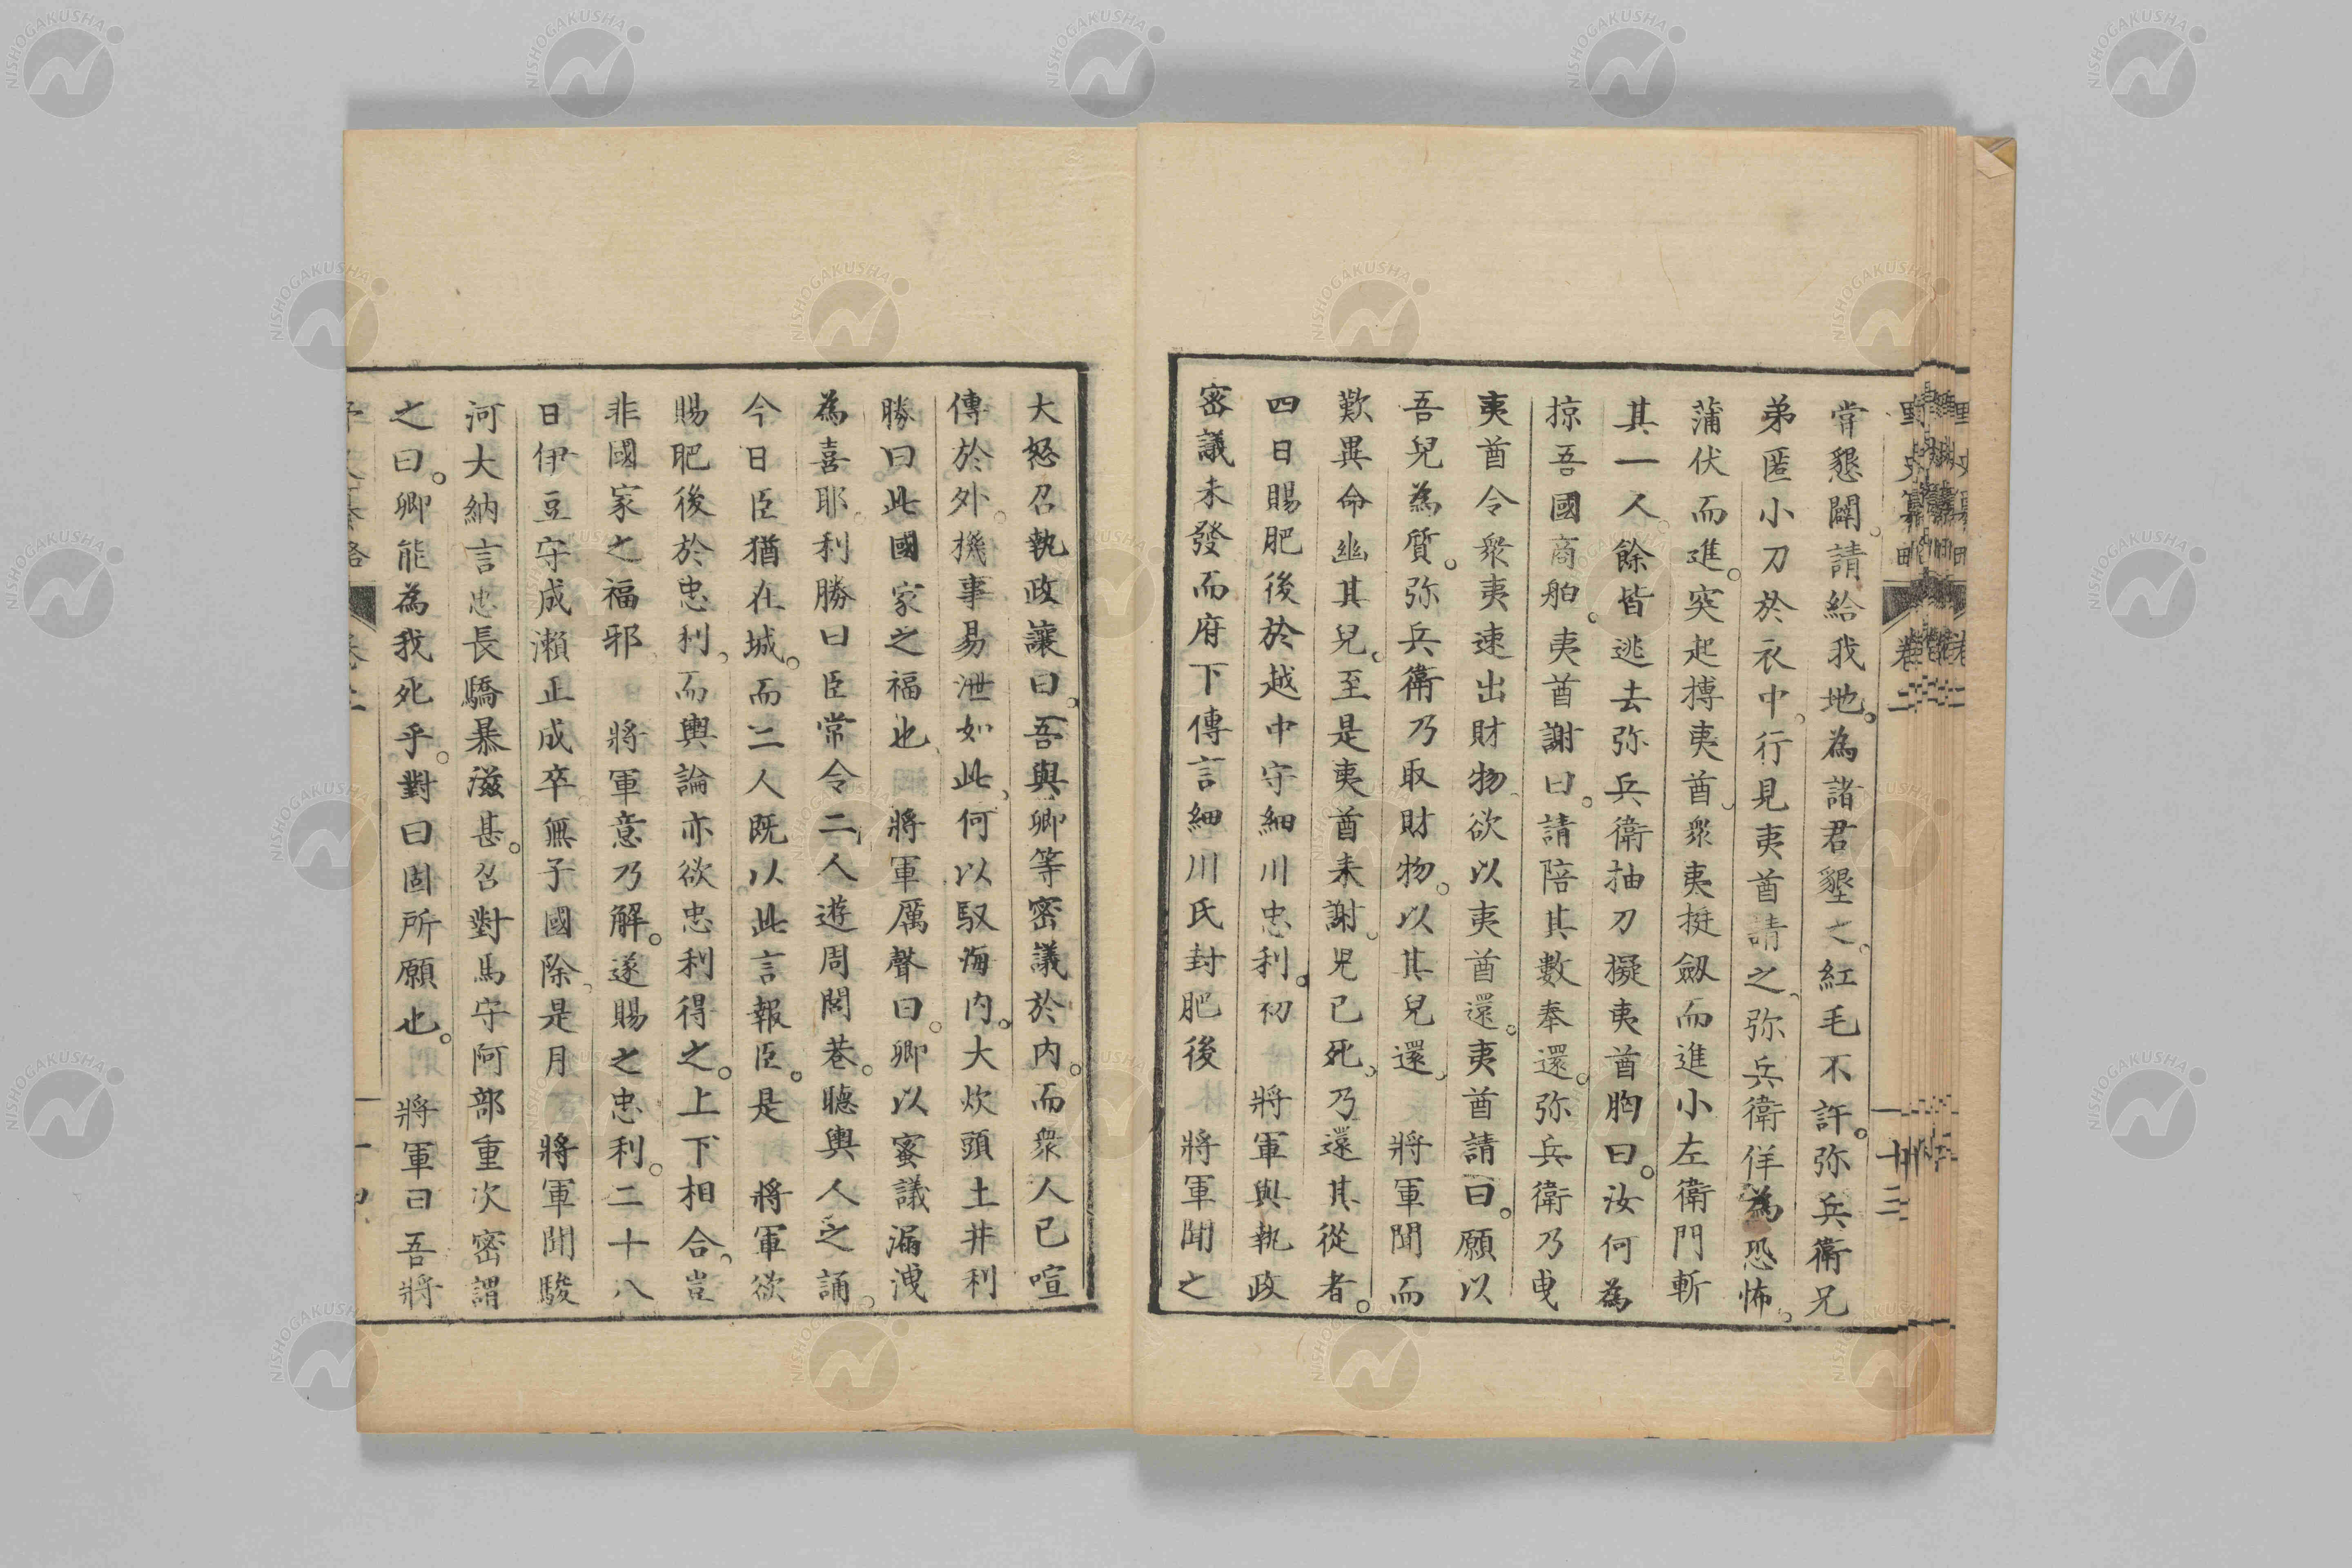 常懇闢。請給我地。為諸君墾之。紅毛不許。弥兵衛兄
弟匿小刀於衣中。行見夷酋請之、弥兵衛佯為恐怖、
蒲伏而進。突起摶夷酋、衆夷挺劔而進小左衛門斬
其一人。餘皆逃去弥兵衛抽刀擬夷酋胸曰。汝何為
掠吾國商舶。夷酋謝曰。請陪其數奉還。弥兵衛乃曳
夷酋令衆夷速出財物、欲以夷酋還。夷酋請曰。願以
吾兒為質。弥兵衛乃取財物。以其兒還、 將軍聞而
歎異命幽其兒、至是夷酋来謝。児已死、乃還其從者。
四日賜肥後於越中守細川忠利。初 將軍與執政
密議未發而府下傳言細川氏封肥後 將軍聞之
大怒召執政讓曰。吾與卿等密議於内。而衆人已喧
傳於外。機事易泄如此、何以馭海内。大炊頭土井利
勝曰此國家之福也、 將軍厲聲曰。卿以蜜議漏洩
為喜耶。利勝曰臣常令二人遊周閭巷。聴輿人之誦。
今日臣猶在城。而二人既以此言報臣。是 將軍欲
賜肥後於忠利、而輿論亦欲忠利得之。上下相合、豈
非國家之福邪、 將軍意乃解。遂賜之忠利。二十八
日伊豆守成瀬正成卒無子國除、是月 將軍聞駿
河大納言忠長驕暴滋甚。召對馬守阿部重次密謂
之曰。卿能為我死乎。對曰固所願也。 將軍曰吾將